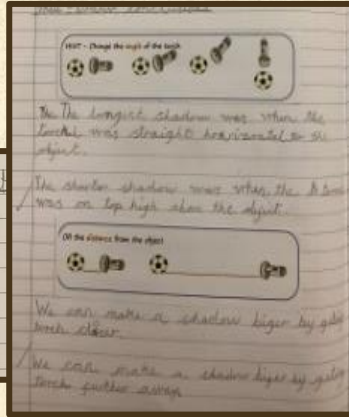 HINT - Change the angle of the torch
The The longest shadow was when the
torch was straight horizontal to the
object.
The shorter shadow was when the
was on top high above the object.
OR the distance from the object
We can make a shadow biger by
torch closer.
We can make a shadow biger by
torch further away